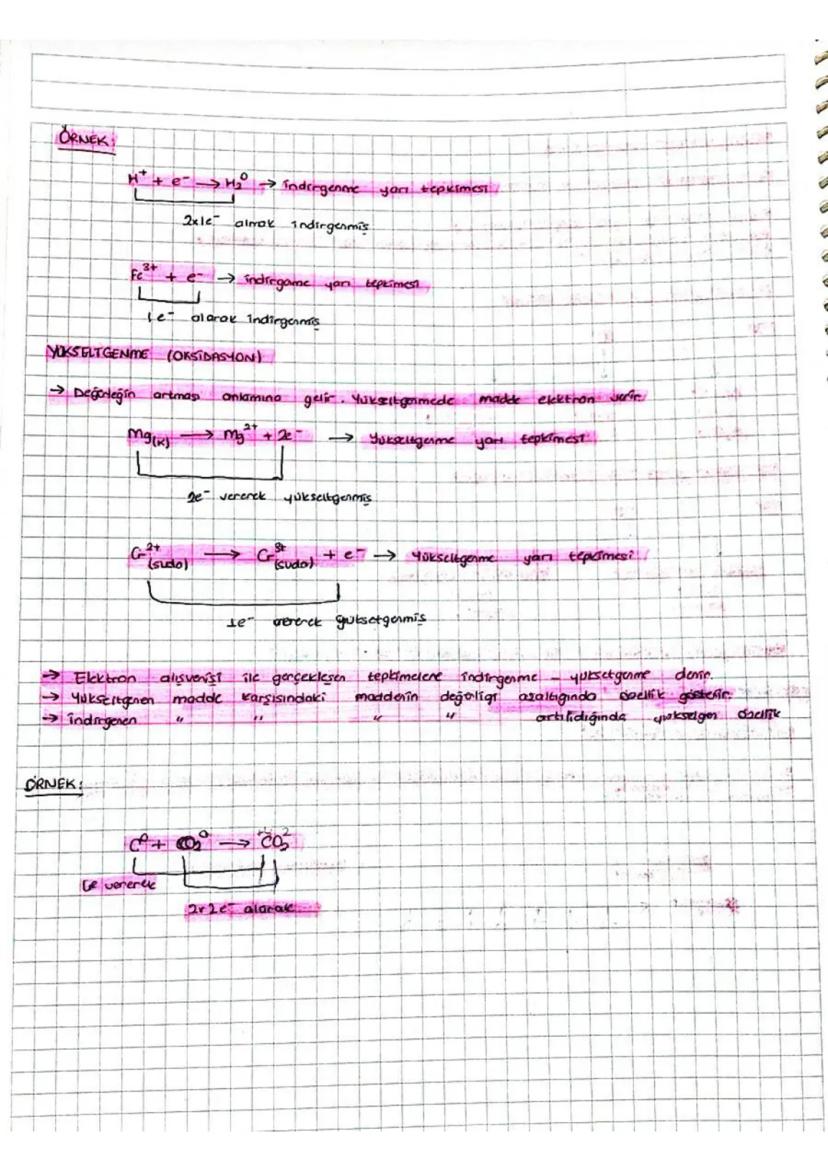 ÖRNEK:
H⁺ + e⁻ → H₂⁰ → indirgenme yarı tepkimesi
2x1e⁻ almak indirgenmiş
Fe³⁺ + e⁻ → indirgeme yarı tepkimesi
1e⁻ alarak indirgenmiş
YÜKSELTGENME (OKSİDASYON)
→ Değerleğin artması anlamına gelir. Yükseltgenmede madde elektron verir.
Mg(k) → Mg²⁺ + 2e⁻ → Yükseltgenme yarı tepkimesi
2e⁻ vererek yükseltgenmiş
Cr²⁺(suda) → Cr³⁺(suda) + e⁻ → Yükseltgenme yarı tepkimesi
1e⁻ vererek yüksetgenmiş
→ Elektron alışverişi ile gerçekleşen tepkimelere indirgenme - yüksetgenme denir.
→ Yükseltgenen madde karşısındaki maddenin değerliği azaltığında özellik gösterir.
→ indirgenen " " " " artılıdığında yükselgen özellik
ÖRNEK:
C⁰ + O₂⁰ → CO₂
vererek
2x2e⁻ alarak